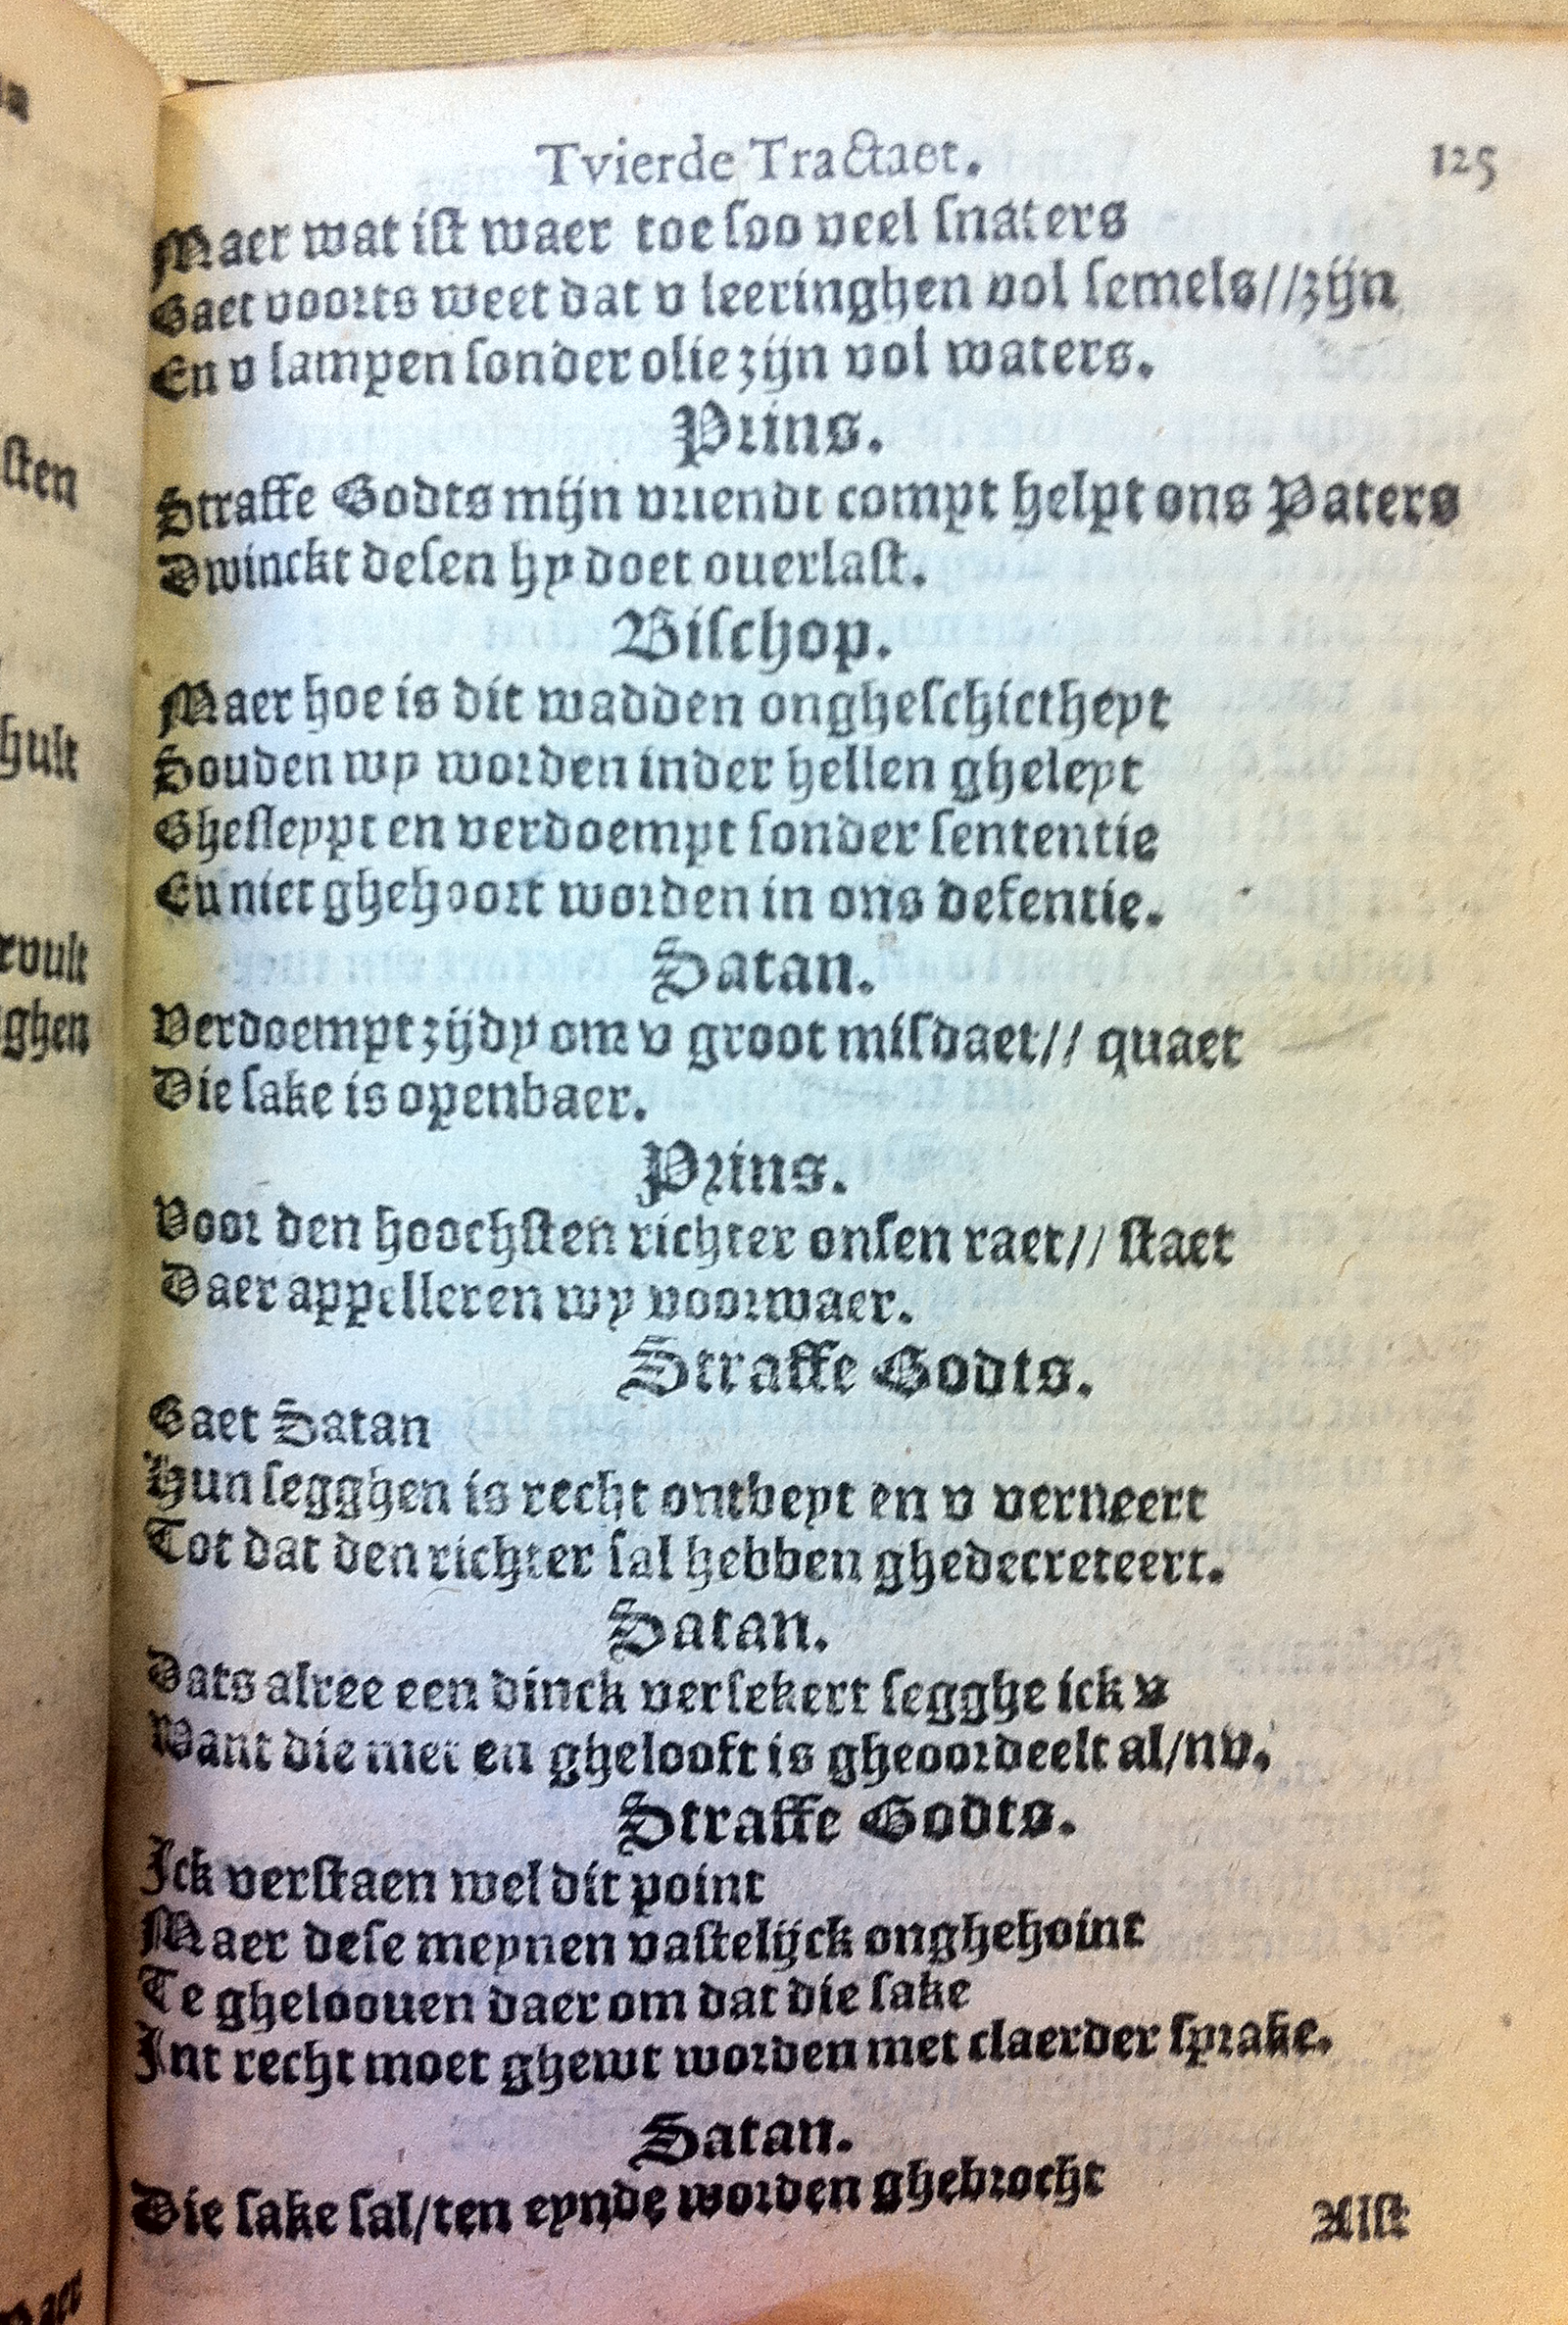 Tvierde Tractaet. 125
Maer wat ist waer toe soo veel snaters
Gaet voorts weet dat v leeringhen vol semels//zijn
En v lampen sonder olie zijn vol waters.
Prins.
Straffe Godts mijn vriendt compt helpt ons Paters
Dwinckt desen hy doet ouerlast.
Bisschop.
Maer hoe is dit wadden ongheschictheyt
Souden wy worden inder hellen gheleyt
Ghesleypt en verdoempt sonder sententie
En niet ghehoort worden in ons defentie.
Satan.
Verdoempt zijdy om v groot misdaet// quaet
Die sake is openbaer.
Prins.
Voor den hoochsten richter onsen raet// staet
Daer appelleren wy voorwaer.
Straffe Godts.
Gaet Satan
Hun segghen is recht ontbeyt en v verneert
Tot dat den richter sal hebben ghedecreteert.
Satan.
Dats alree een dinck versekert segghe ick v
Want die niet en ghelooft is gheoordeelt al/nv.
Straffe Godts.
Ick verstaen wel dit point
Maer dese meynen vastelijck onghehoint
Te gheloouen daer om dat die sake
Int recht moet ghewt worden met claerder sprake.
Satan.
Die sake sal/ten eynde worden ghebrocht
Alst
sten
hult
rvult
ghen